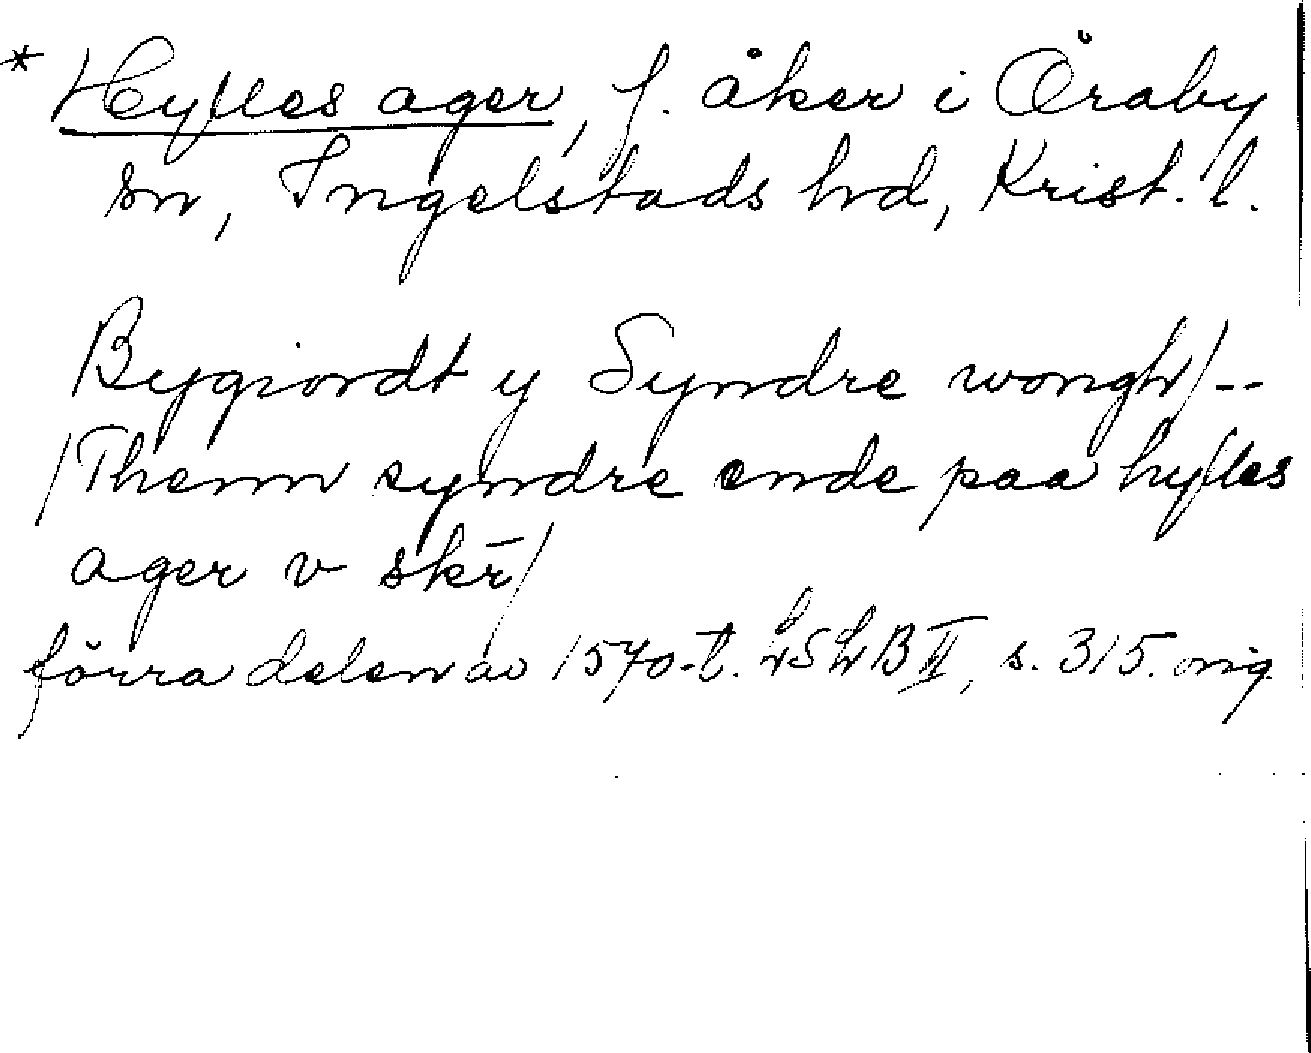 * Hylles ager, f. åker i Öraby
sn, Ingelstads hd, Krist. l.
Bygiordt y Syndre wongh/--
/Thenn syndre ende paa hylles
ager v skr̄/
förra delen av 1570-t. LSLB II, s. 315. orig